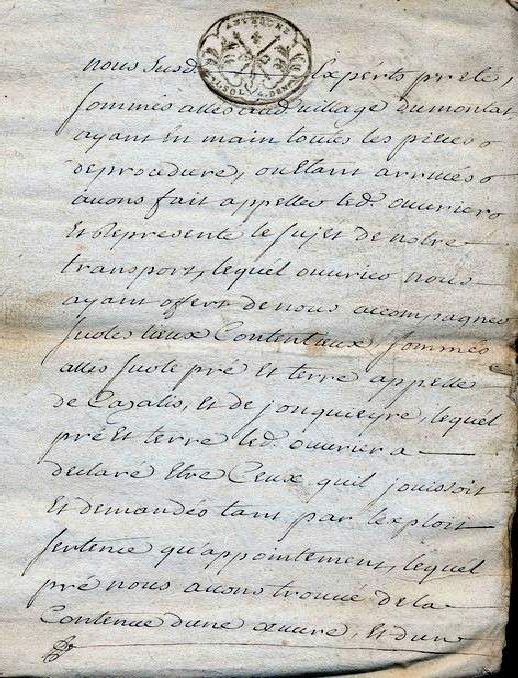 nous susd. Experts prete,
sommes allés aud. village Dumontat
ayant En main toutes les pieces
de procedure, ou Etant arrivés
avons fait appeller led. ouvrier
Et Represente le sujet de notre
transport, lequel ouvrier nous
ayant offert de nous accompagner
sur les lieux Contentieux, sommes
allés sur le pré Et terre appellé
de Cazalis, Et de jonqueyre, lequel
pré Et terre led. ouvrier a
declaré Etre Ceux quil jouissoit
Et demandés tant par lexploit
sentence qu'appointement, lequel
pré nous avons trouvé de la
Contenue dune œuvre, Et dun